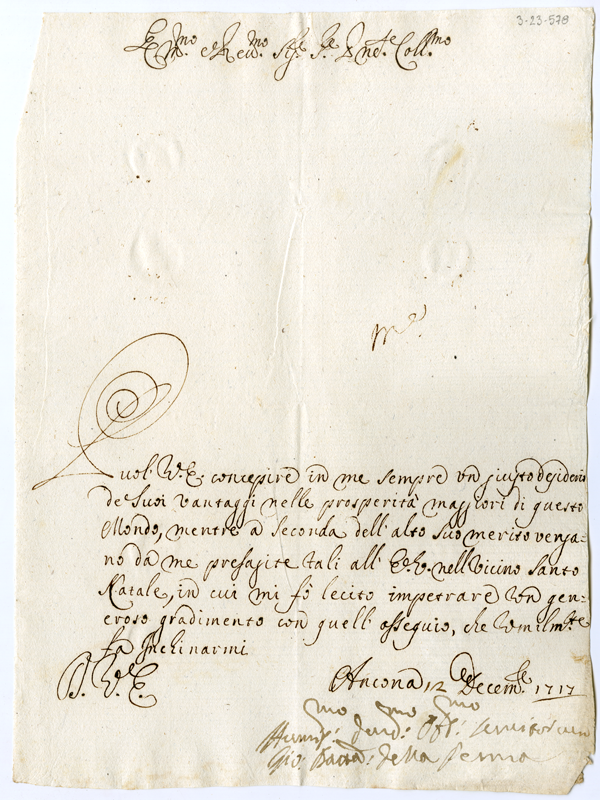 3-23-578
E.mo e Rev.mo Sig.r S.r P.ne Coll.mo
Può l'V.E. concepire in me sempre un giusto desiderio
de Suoi vantaggi nelle prosperità maggiori di questo
Mondo, mentre a seconda dell'alto Suo merito venga-
no da me presagite tali all'E.V. nell'vicino Santo
Natale, in cui mi fò lecito impetrare un gen-
eroso gradimento con quell'ossequio, che Umilm.te
fa Inchinarmi
D. V. E.
Ancona 12 Decem.re 1717
Humil.mo Dev.mo Obl.mo servitor
Gio: Batta: della Penna